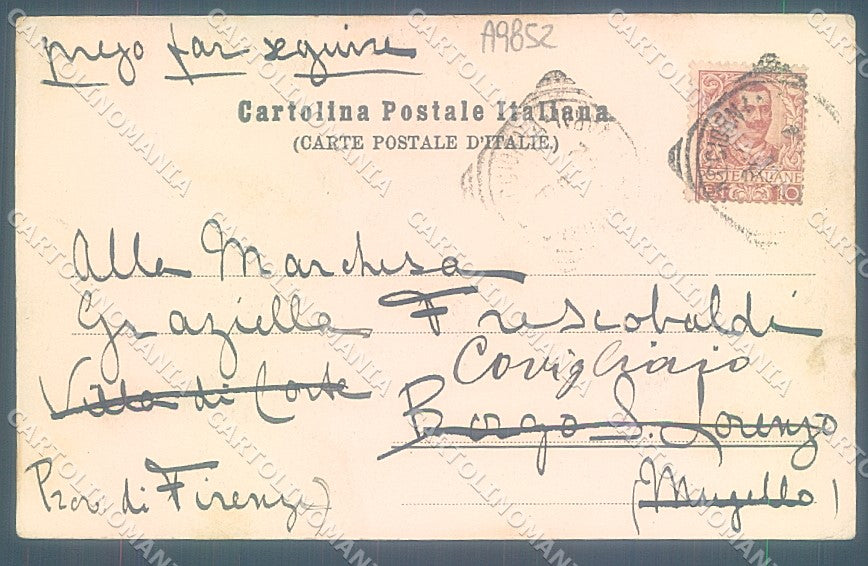 prego far seguire
A9B52
Cartolina Postale Italiana
(CARTE POSTALE D'ITALIE.)
POSTE ITALIANE
10
Alla Marchesa
Graziella Frescobaldi
Covigliaio
Villa di Corte Borgo S. Lorenzo
Prov. di Firenze (Mugello)
CARTOLINOMANIA